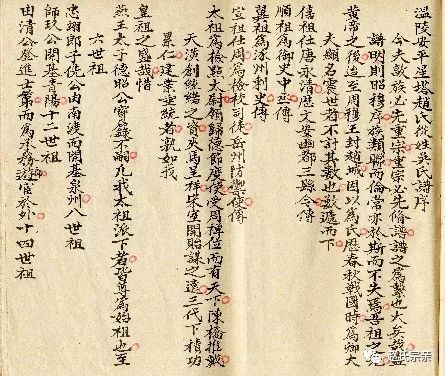 溫陵安平星塔趙氏從姓吳氏譜序
今夫敦族必先重宗重宗必先脩譜譜之為繫也大矣哉蓋
譜明則昭穆序族類聯而倫常亦於斯而不失焉吾祖之先
黃帝之後造至周穆王封趙城因以為氏歷春秋戰國時為卿大
夫顯名震世者不計其數也數遞而下
僖祖仕唐永清歷文安幽都三縣令傳
順祖為御史中丞傳
翼祖為涿州刺史傳
宣祖仕周為檢校司徒岳州防禦使傳
太祖為檢點太尉領歸德節度使受周禪位而有天下陳橋推戴
天漢創統緒之寄夾馬呈祥柴室開貽謀之遠三代下積功
累仁建業垂統者孰如我
皇祖之盛哉惜
燕王太子德昭公寶籙不嗣凡我太祖派下者皆尊為始祖也至
六世祖
忠翊郎子侁公由南渡而開基泉州八世祖
師玖公開基晉陽十二世祖
由清公登進士第而為承務遊宦於外十四世祖
赵氏宗亲